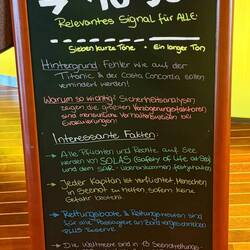 Relevantes Signal für ALLE:
Sieben kurze Töne • Ein langer Ton
Hintergrund: Fehler wie auf der
Titanic & der Costa Concordia sollen
vermindert werden!
Warum so wichtig? Sicherheitsanalysen
zeigen die größten Verzögerungsfaktoren
sind menschliche Verhaltensweisen bei
Evakuierungen!
Interessante Fakten:
→ Alle Pflichten und Rechte auf See
werden von SOLAS (Safety of Life at Sea)
und dem SAR-
→ Jeder Kapitän ist verpflichtet Menschen
in Seenot zu helfen, sofern keine
Gefahr besteht
→ Rettungsboote & Rettungsinseln sind
für alle Passagiere an Bord vorgeschrieben
PLUS Reserve
→ Die Weltmeere sind in 13